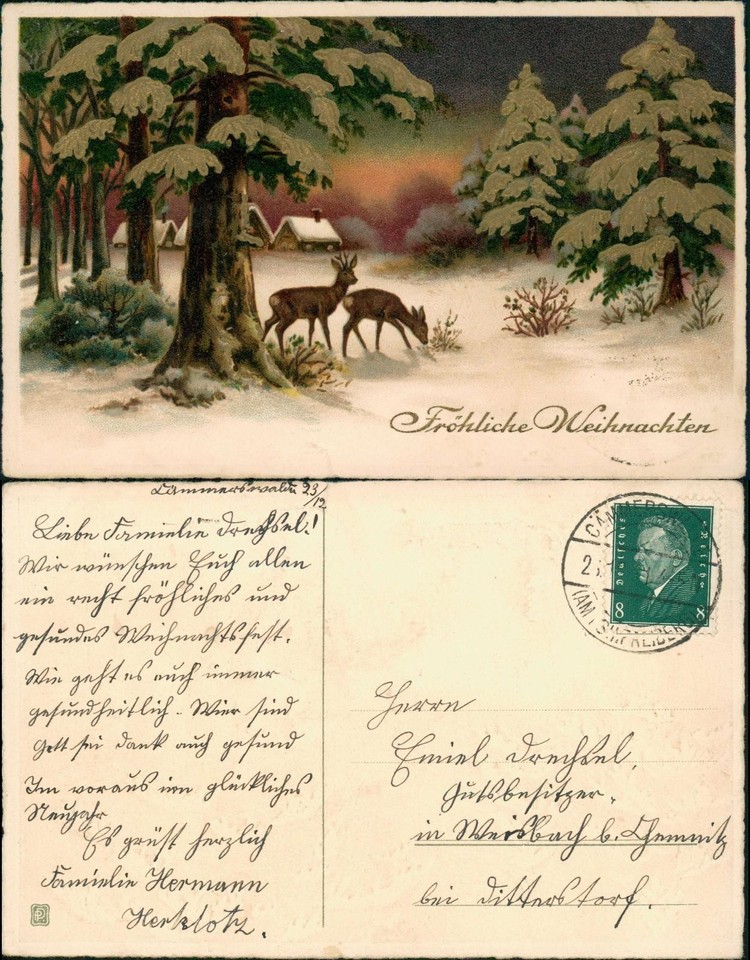 Fröhliche Weihnachten
Cämmerswalde 23/12
Liebe Famielie Drechsel!
Wir wünschen Euch allen
ein recht fröhliches und
gesundes Weihnachtsfest.
Wie geht es euch immer
gesundheitlich. Wier sind
Gott sei dank auch gesund
Im voraus ien glückliches
Neujahr
Es grüst herzlich
Famielie Hermann
Herklotz.
Deutsches Reich
8 8
Herrn
Emiel Drechsel.
Gutsbesitzer.
in Weisbach b. Chemnitz
bei Dittersdorf.